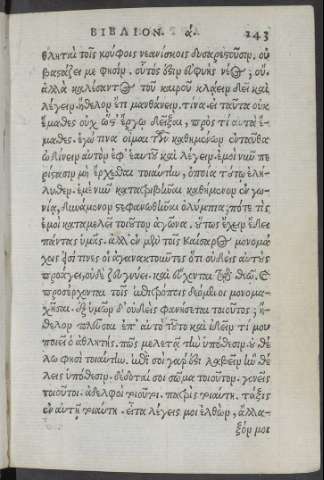 ΒΙΒΛΙΟΝ ά 243
βλητὰ τοῖς κούφοις νεανίσκοις δυσαρεστοῦσιν. οὐ
βαστάζει με φησίν. οὗτός ἐστιν εὐφυὴς νέος; οὔ.
ἀλλὰ καλέσαντος τοῦ καιροῦ κλάειν δεῖ καὶ
λέγειν. ἤθελον ἔτι μανθάνειν. τίνα. εἰ ταῦτα οὐκ
ἔμαθες οὐχ ὥςτ' ἔργῳ δεῖξαι, πρὸς τί αὐτὰ ἔ-
μαθες. ἐγώ τινα οἶμαι τῶν καθημένων ἐνταῦθα
ὠδίνειν αὐτὸν ἐφ' ἑαυτοῦ καὶ λέγειν. ἐμοὶ νῦν πε
ρίστασιν μὴ ἔρχεσθαι τοιαύτην, ὁποία τούτῳ ἐλή-
λυθεν. ἐμὲ νῦν κατατριβῆναι καθήμενον ἐν γω-
νίᾳ, δυνάμενον στεφανωθῆναι ὀλύμπια; πότε τὶς
ἐμοὶ καταγγελεῖ τοιοῦτον ἀγῶνα. οὕτως ἔχειν ἔδει
πάντας ὑμᾶς. ἀλλ' ἐν μὲν τοῖς καίσαρος μονομά
χοις εἰσί τινες οἱ ἀγανακτοῦντες ὅτι οὐδεὶς αὐτοὺς
προάγει, οὐδὲ ζευγνύει. καὶ εὔχονται τῷ θεῷ. καὶ
προσέρχονται τοῖς ἐπιτρόποις δεόμενοι μονομα-
χῆσαι. ἐξ ὑμῶν δ' οὐδεὶς φανήσεται τοιοῦτος; ἤ-
θελον πλεῦσαι ἐπ' αὐτὸ τοῦτο καὶ ἰδεῖν τί μου
ποιεῖ ὁ ἀθλητής. πῶς μελετᾷ τὴν ὑπόθεσιν. οὐ θέ
λω φησὶ τοιαύτην. ἐπὶ σοὶ γάρ ἐστι λαβεῖν ἣν θέ-
λεις ὑπόθεσιν. δέδοταί σοι σῶμα τοιοῦτον. γονεῖς
τοιοῦτοι. ἀδελφοὶ τοιοῦτοι. πατρὶς τοιαύτη. τάξις
ἐν αὐτῇ τοιαύτη. εἶτα λέγεις μοι ἐλθὼν, ἄλλα-
ξόν μοι